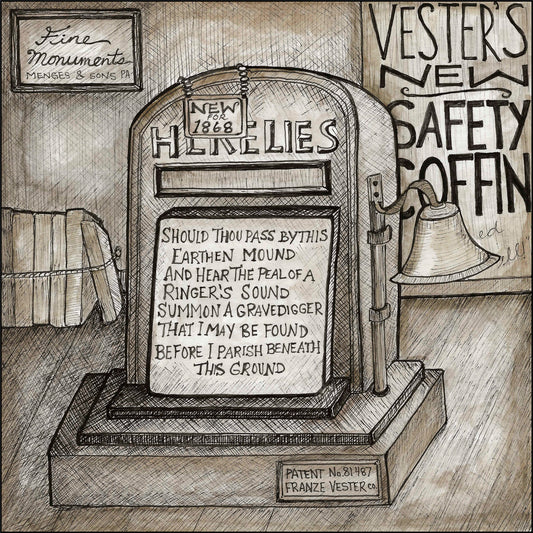 Fine
Monuments
MENGES & SONS PA
VESTER'S
NEW
SAFETY
COFFIN
NEW
FOR
1868
HERE LIES
SHOULD THOU PASS BY THIS
EARTHEN MOUND
AND HEAR THE PEAL OF A
RINGER'S SOUND
SUMMON A GRAVEDIGGER
THAT I MAY BE FOUND
BEFORE I PARISH BENEATH
THIS GROUND
PATENT No. 81487
FRANZE VESTER CO.